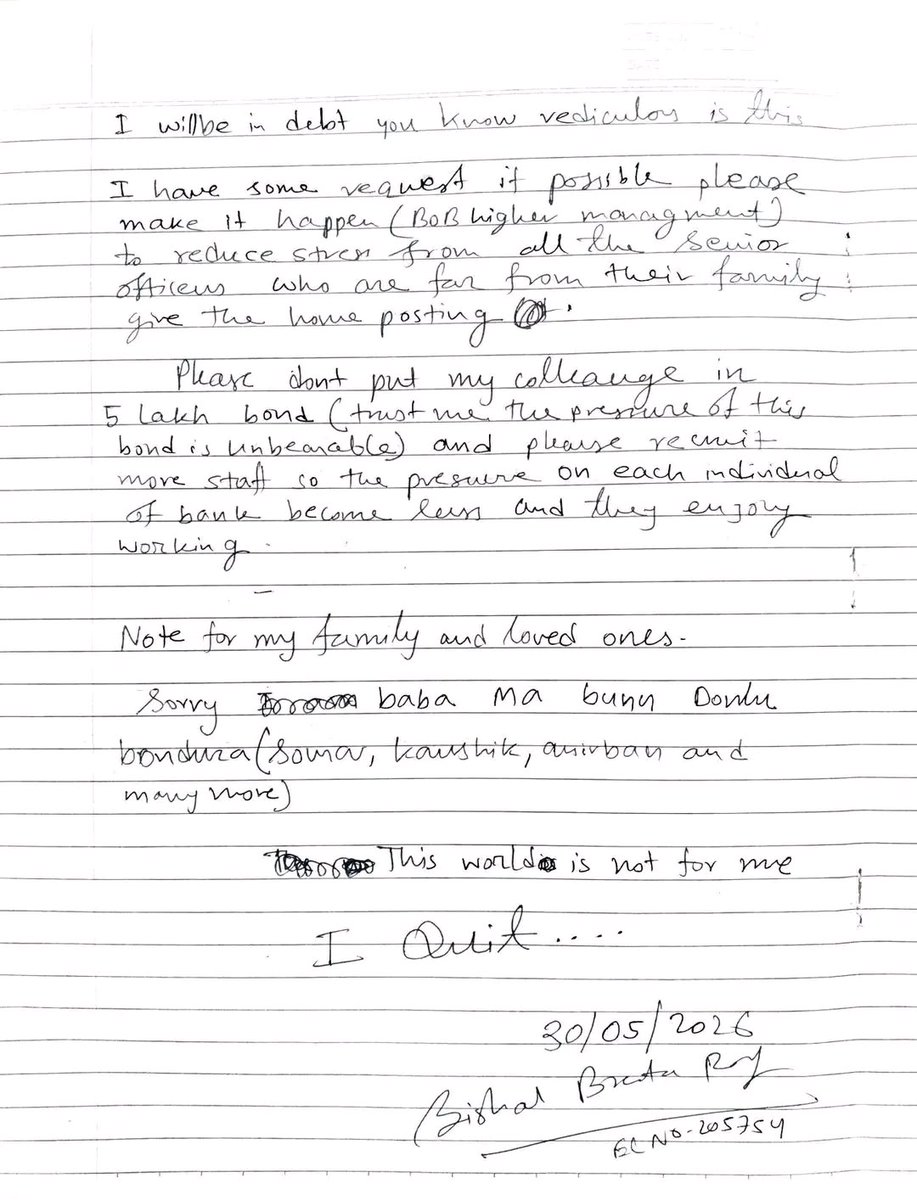 I willbe in debt you know rediculos is this
I have some request if possible please
make it happen (BOB higher managment)
to reduce stress from all the senior
officers who are far from their family
give the home posting .
Please dont put my colleauge in
5 lakh bond (trust me the pressure of this
bond is unbearable) and please recruit
more staff so the presuere on each individual
of bank become less and they enjoy
working.
Note for my family and loved ones.
Sorry baba Ma bunu
bondura (Somar, kaushik, anirban and
many more)
This world is not for me
I Quit ....
30/05/2026
Bishal Brata Roy
EC NO-205754